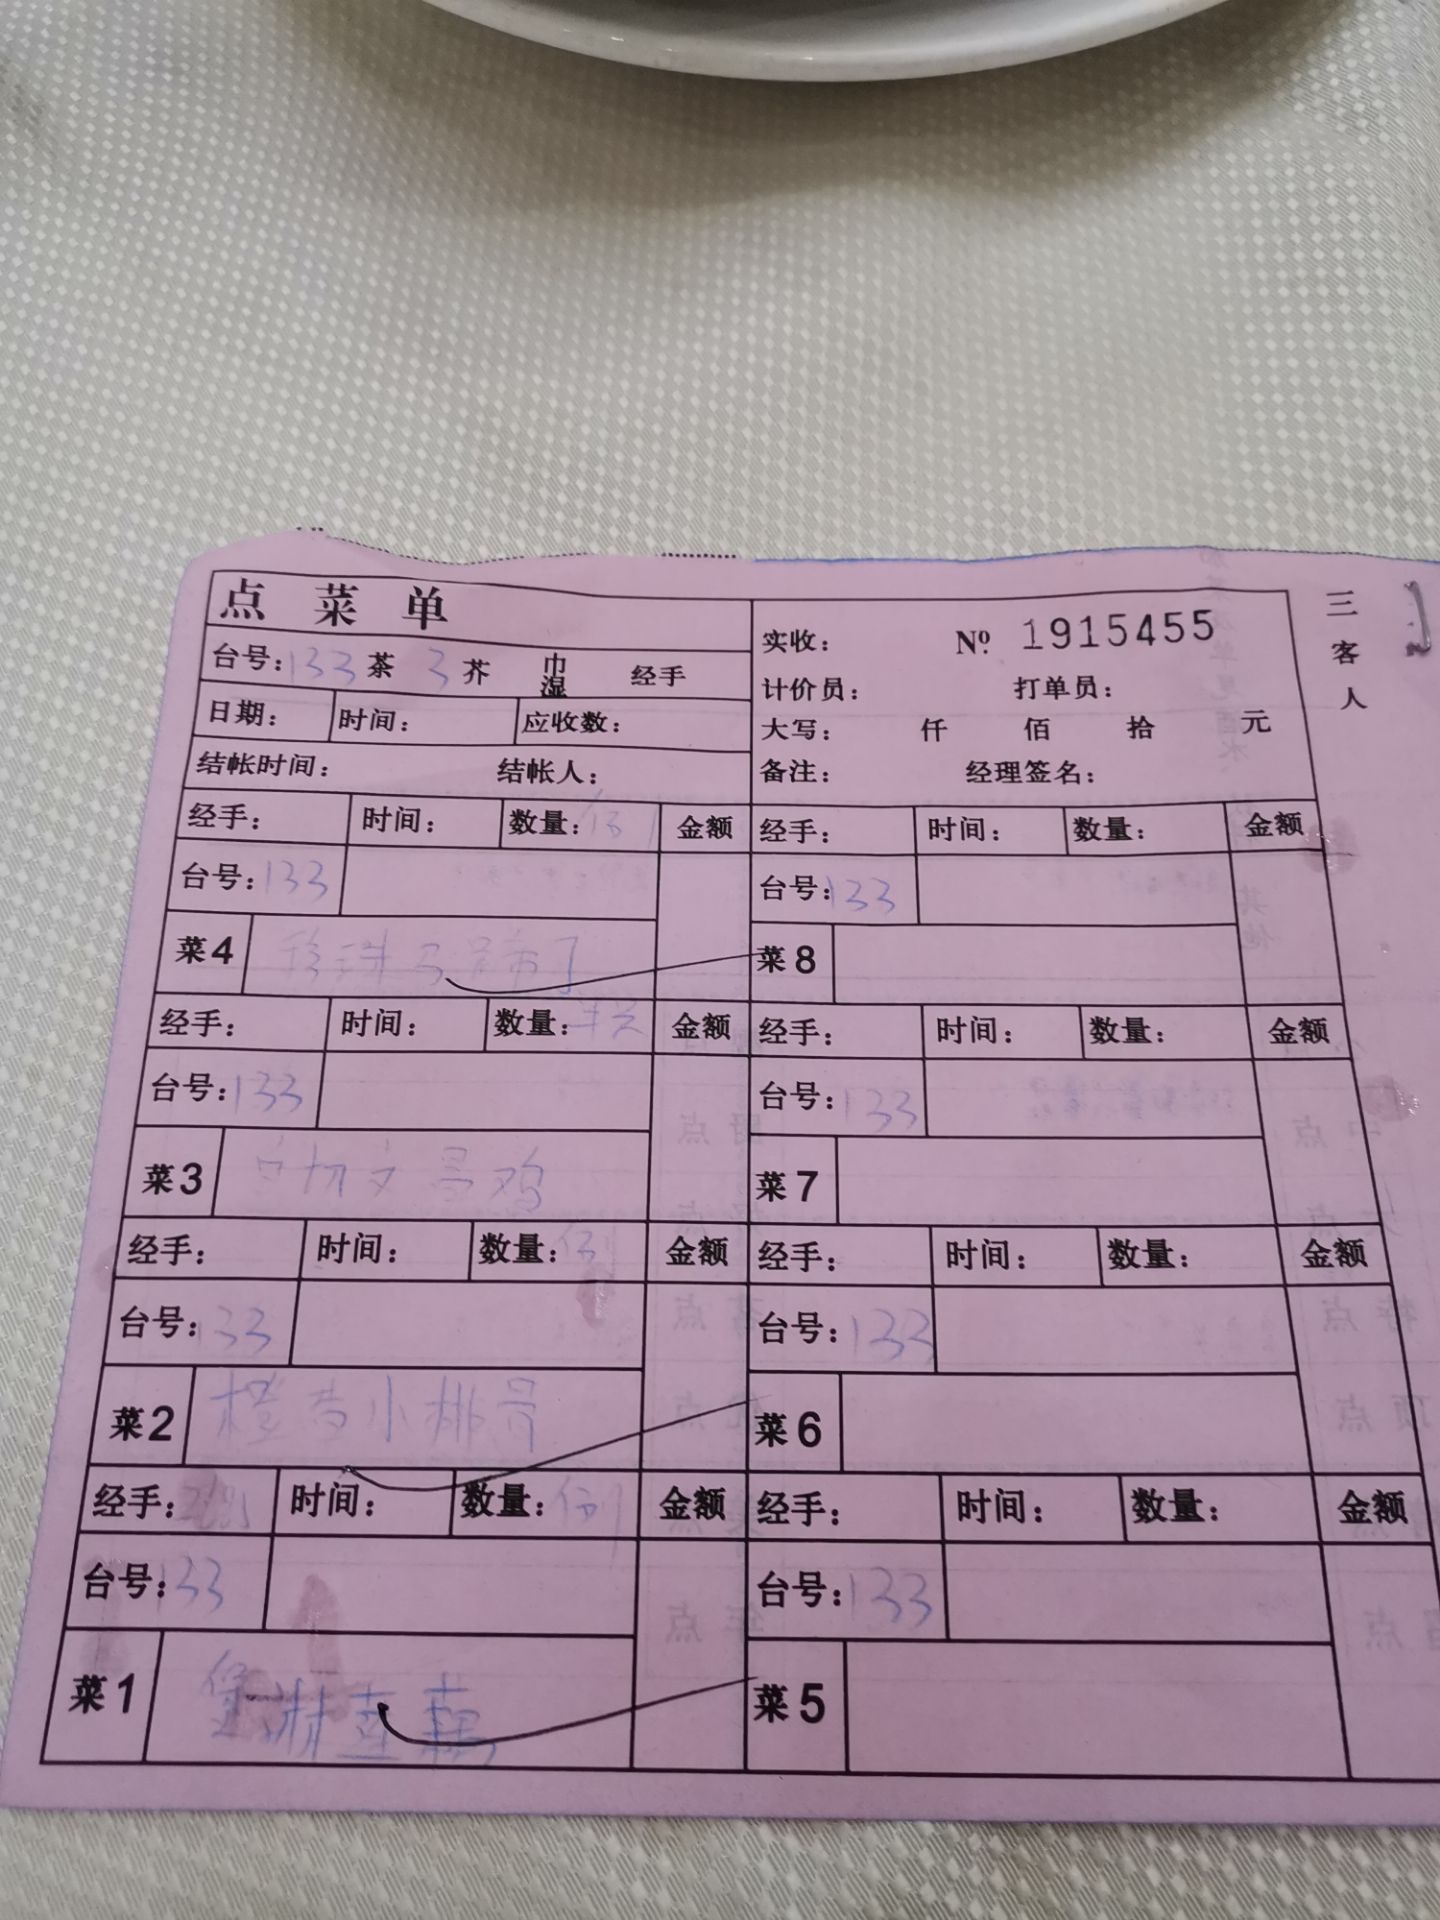 点菜单
台号: 133 茶 3 芥 巾湿 经手
日期: 时间: 应收数:
结帐时间: 结帐人:
实收: Nº 1915455
计价员: 打单员:
大写: 仟 佰 拾 元
备注: 经理签名:
三客人
经手: 时间: 数量: 例 金额
台号: 133
菜4 珍珠马蹄丁
经手: 时间: 数量: 金额
台号: 133
菜8
经手: 时间: 数量: 半只 金额
台号: 133
菜3 白切文昌鸡
经手: 时间: 数量: 金额
台号: 133
菜7
经手: 时间: 数量: 例 金额
台号: 133
菜2 橙香小排骨
经手: 时间: 数量: 金额
台号: 133
菜6
经手: 时间: 数量: 例 金额
台号: 133
菜1
经手: 时间: 数量: 金额
台号: 133
菜5